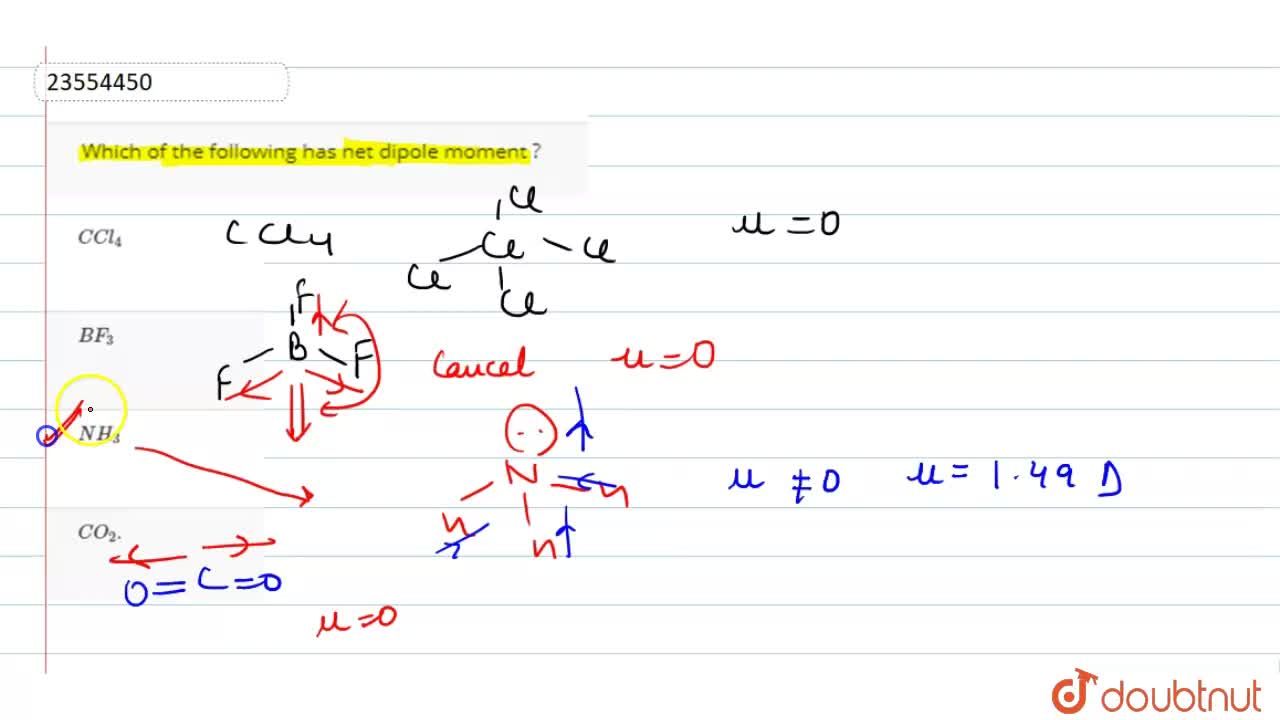 23554450
Which of the following has net dipole moment ?
CCl₄
C Cl4
Cl
Cl
Cl
Cl
Cl
μ = 0
BF₃
F
B
F
F
Cancel
μ = 0
NH₃
..
N
H
H
H
μ ≠ 0
μ = 1.49 D
CO₂.
O = C = O
μ = 0
doubtnut